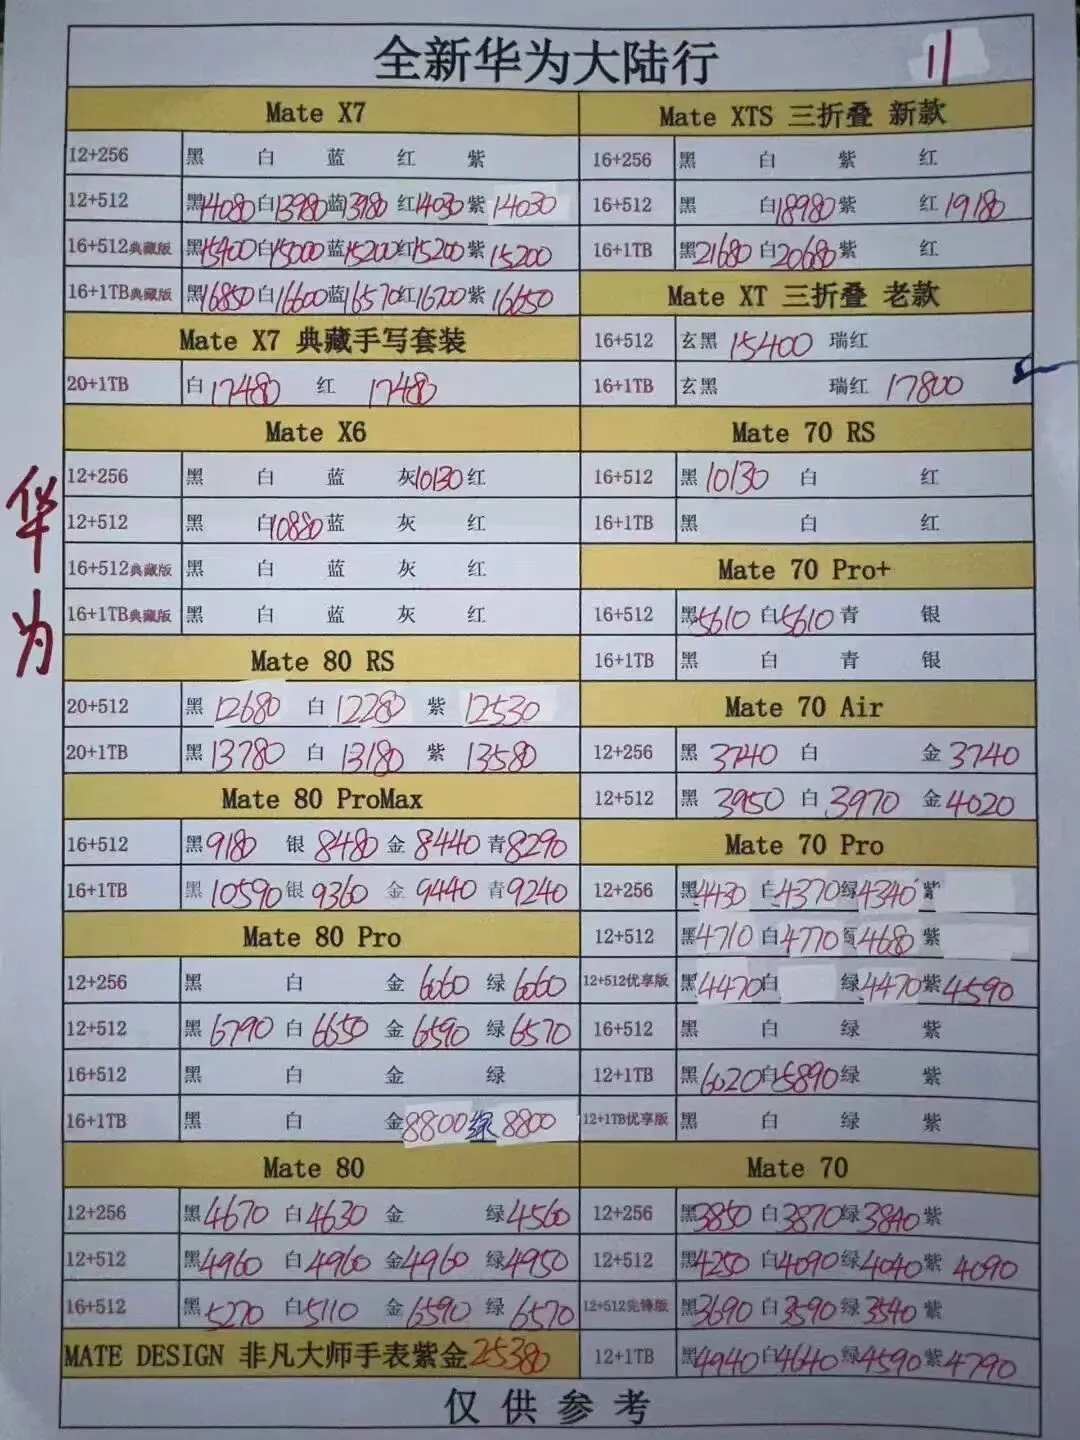 全新华为大陆行
11
华为
Mate X7
12+256 黑 白 蓝 红 紫
12+512 黑14080 白13980 蓝13980 红14030 紫14030
16+512典藏版 黑15400 白15000 蓝15200 红15200 紫15200
16+1TB典藏版 黑16850 白16600 蓝16570 红16700 紫16650
Mate X7 典藏手写套装
20+1TB 白17480 红17480
Mate X6
12+256 黑 白 蓝 灰10130 红
12+512 黑 白10880 蓝 灰 红
16+512典藏版 黑 白 蓝 灰 红
16+1TB典藏版 黑 白 蓝 灰 红
Mate 80 RS
20+512 黑12680 白12280 紫12530
20+1TB 黑13780 白13180 紫13580
Mate 80 ProMax
16+512 黑9180 银8480 金8440 青8290
16+1TB 黑10590 银9360 金9440 青9240
Mate 80 Pro
12+256 黑 白 金6060 绿6060
12+512 黑6790 白6650 金6590 绿6570
16+512 黑 白 金 绿
16+1TB 黑 白 金8800 绿8800
Mate 80
12+256 黑4670 白4630 金 绿4560
12+512 黑4960 白4960 金4960 绿4950
16+512 黑5270 白5110 金6590 绿6570
MATE DESIGN 非凡大师手表紫金25380
Mate XTS 三折叠 新款
16+256 黑 白 紫 红
16+512 黑 白18980 紫 红19180
16+1TB 黑21680 白20680 紫 红
Mate XT 三折叠 老款
16+512 玄黑15400 瑞红
16+1TB 玄黑 瑞红17800
Mate 70 RS
16+512 黑10130 白 红
16+1TB 黑 白 红
Mate 70 Pro+
16+512 黑5610 白5610 青 银
16+1TB 黑 白 青 银
Mate 70 Air
12+256 黑3740 白 金3740
12+512 黑3950 白3970 金4020
Mate 70 Pro
12+256 黑4430 白4370 绿4340 紫
12+512 黑4710 白4770 4680 紫
12+512优享版 黑4470 白 绿4470 紫4590
16+512 黑 白 绿 紫
12+1TB 黑6020 白5890 绿 紫
12+1TB优享版 黑 白 绿 紫
Mate 70
12+256 黑3850 白3870 绿3840 紫
12+512 黑4250 白4090 绿4040 紫4090
12+512先锋版 黑3690 白3590 绿3540 紫
12+1TB 黑4940 白4640 绿4590 紫4790
仅供参考